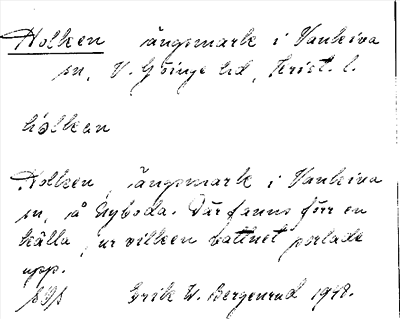 Holken ängsmark i Vankiva
sn, V. Göinge hd, Krist. l.
hölkan
Holken, ängsmark i Vankiva
sn, å Nyboda. Där fanns förr en
källa, ur vilken vattnet porlade
upp.
Erik W. Bergenrud 1948.